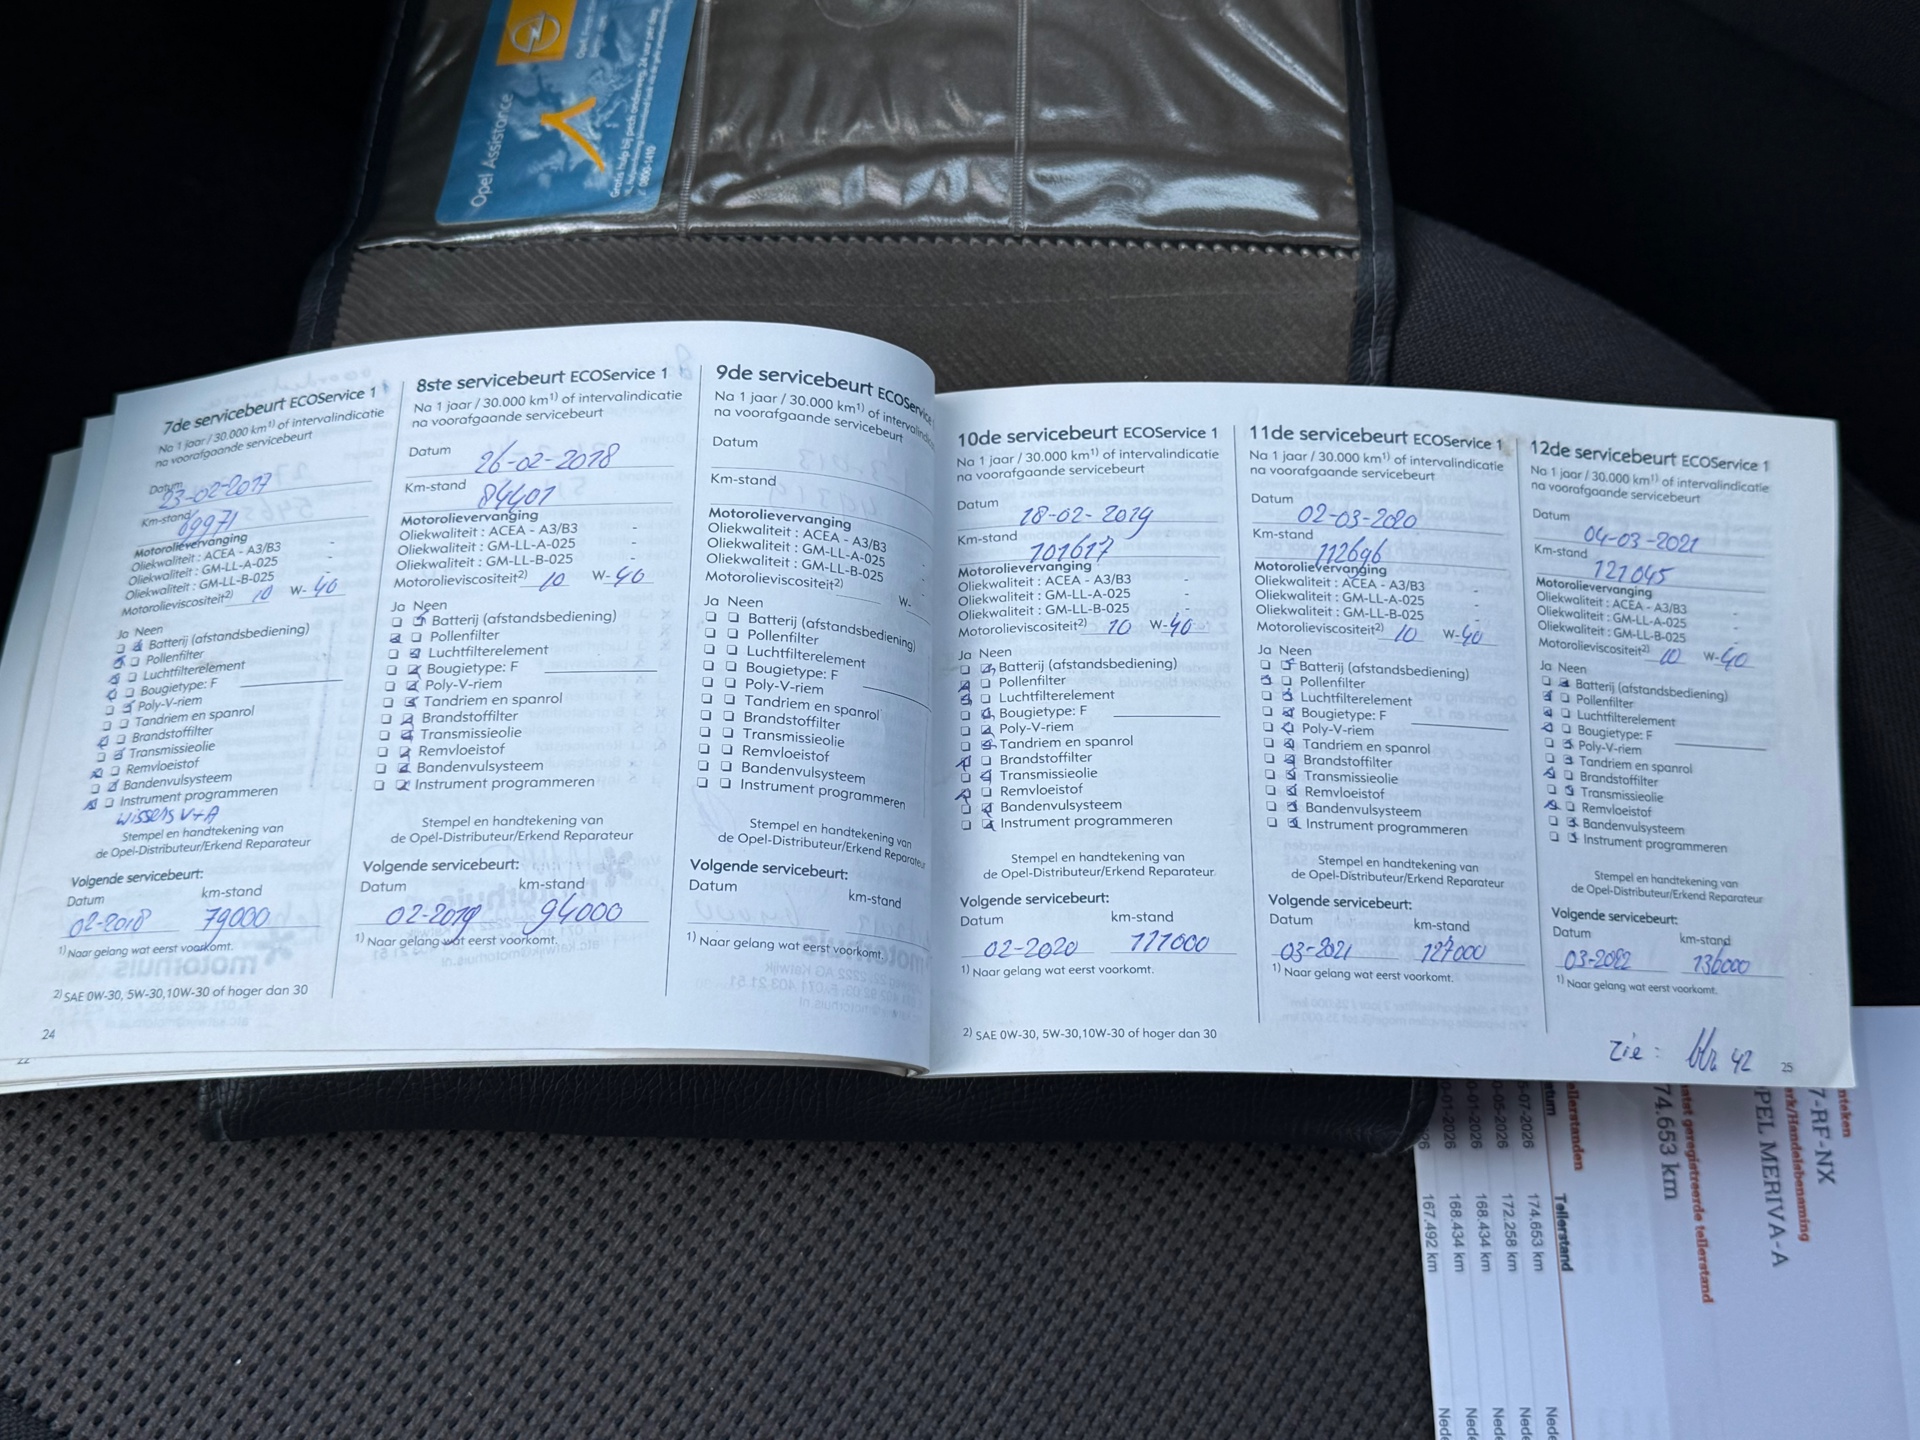 Opel Assistance
Gratis hulp bij pech onderweg, 24 uur per dag
0800-1410
7de servicebeurt ECOService 1
Na 1 jaar / 30.000 km¹⁾ of intervalindicatie
na voorafgaande servicebeurt
Datum
23-02-2017
Km-stand
69971
Motorolievervanging
Oliekwaliteit : ACEA - A3/B3 -
Oliekwaliteit : GM-LL-A-025 -
Oliekwaliteit : GM-LL-B-025 -
Motorolieviscositeit²⁾ 10 W-40
Ja Neen
Batterij (afstandsbediening)
Pollenfilter
Luchtfilterelement
Bougietype: F
Poly-V-riem
Tandriem en spanrol
Brandstoffilter
Transmissieolie
Remvloeistof
Bandenvulsysteem
Instrument programmeren
wissers V+A
Stempel en handtekening van
de Opel-Distributeur/Erkend Reparateur
Volgende servicebeurt:
Datum km-stand
02-2018 79000
¹⁾ Naar gelang wat eerst voorkomt.
²⁾ SAE 0W-30, 5W-30,10W-30 of hoger dan 30
24
22
8ste servicebeurt ECOService 1
Na 1 jaar / 30.000 km¹⁾ of intervalindicatie
na voorafgaande servicebeurt
Datum 26-02-2018
Km-stand 84401
Motorolievervanging
Oliekwaliteit : ACEA - A3/B3 -
Oliekwaliteit : GM-LL-A-025 -
Oliekwaliteit : GM-LL-B-025 -
Motorolieviscositeit²⁾ 10 W-40
Ja Neen
Batterij (afstandsbediening)
Pollenfilter
Luchtfilterelement
Bougietype: F
Poly-V-riem
Tandriem en spanrol
Brandstoffilter
Transmissieolie
Remvloeistof
Bandenvulsysteem
Instrument programmeren
Stempel en handtekening van
de Opel-Distributeur/Erkend Reparateur
Volgende servicebeurt:
Datum km-stand
02-2019 94000
¹⁾ Naar gelang wat eerst voorkomt.
9de servicebeurt ECOService
Na 1 jaar / 30.000 km¹⁾ of intervalindicatie
na voorafgaande servicebeurt
Datum
Km-stand
Motorolievervanging
Oliekwaliteit : ACEA - A3/B3 -
Oliekwaliteit : GM-LL-A-025 -
Oliekwaliteit : GM-LL-B-025 -
Motorolieviscositeit²⁾ W-
Ja Neen
Batterij (afstandsbediening)
Pollenfilter
Luchtfilterelement
Bougietype: F
Poly-V-riem
Tandriem en spanrol
Brandstoffilter
Transmissieolie
Remvloeistof
Bandenvulsysteem
Instrument programmeren
Stempel en handtekening van
de Opel-Distributeur/Erkend Reparateur
Volgende servicebeurt:
Datum km-stand
¹⁾ Naar gelang wat eerst voorkomt.
10de servicebeurt ECOService 1
Na 1 jaar / 30.000 km¹⁾ of intervalindicatie
na voorafgaande servicebeurt
Datum 18-02-2019
Km-stand 101617
Motorolievervanging
Oliekwaliteit : ACEA - A3/B3 -
Oliekwaliteit : GM-LL-A-025 -
Oliekwaliteit : GM-LL-B-025 -
Motorolieviscositeit²⁾ 10 W-40
Ja Neen
Batterij (afstandsbediening)
Pollenfilter
Luchtfilterelement
Bougietype: F
Poly-V-riem
Tandriem en spanrol
Brandstoffilter
Transmissieolie
Remvloeistof
Bandenvulsysteem
Instrument programmeren
Stempel en handtekening van
de Opel-Distributeur/Erkend Reparateur
Volgende servicebeurt:
Datum km-stand
02-2020 111000
¹⁾ Naar gelang wat eerst voorkomt.
²⁾ SAE 0W-30, 5W-30,10W-30 of hoger dan 30
11de servicebeurt ECOService 1
Na 1 jaar / 30.000 km¹⁾ of intervalindicatie
na voorafgaande servicebeurt
Datum 02-03-2020
Km-stand 112696
Motorolievervanging
Oliekwaliteit : ACEA - A3/B3 -
Oliekwaliteit : GM-LL-A-025 -
Oliekwaliteit : GM-LL-B-025 -
Motorolieviscositeit²⁾ 10 W-40
Ja Neen
Batterij (afstandsbediening)
Pollenfilter
Luchtfilterelement
Bougietype: F
Poly-V-riem
Tandriem en spanrol
Brandstoffilter
Transmissieolie
Remvloeistof
Bandenvulsysteem
Instrument programmeren
Stempel en handtekening van
de Opel-Distributeur/Erkend Reparateur
Volgende servicebeurt:
Datum km-stand
03-2021 127000
¹⁾ Naar gelang wat eerst voorkomt.
12de servicebeurt ECOService 1
Na 1 jaar / 30.000 km¹⁾ of intervalindicatie
na voorafgaande servicebeurt
Datum 04-03-2021
Km-stand 121045
Motorolievervanging
Oliekwaliteit : ACEA - A3/B3 -
Oliekwaliteit : GM-LL-A-025 -
Oliekwaliteit : GM-LL-B-025 -
Motorolieviscositeit²⁾ 10 W-40
Ja Neen
Batterij (afstandsbediening)
Pollenfilter
Luchtfilterelement
Bougietype: F
Poly-V-riem
Tandriem en spanrol
Brandstoffilter
Transmissieolie
Remvloeistof
Bandenvulsysteem
Instrument programmeren
Stempel en handtekening van
de Opel-Distributeur/Erkend Reparateur
Volgende servicebeurt:
Datum km-stand
03-2022 136000
¹⁾ Naar gelang wat eerst voorkomt.
zie : blz 42
25
nteken
7-RF-NX
erk/Handelsbenaming
PEL MERIVA-A
atst geregistreerde tellerstand
74.653 km
ellerstanden
tum Tellerstand
-07-2026 174.653 km Nede
-05-2026 172.258 km Nede
-01-2026 168.434 km Nede
-01-2026 168.434 km Nede
26 167.492 km Nede